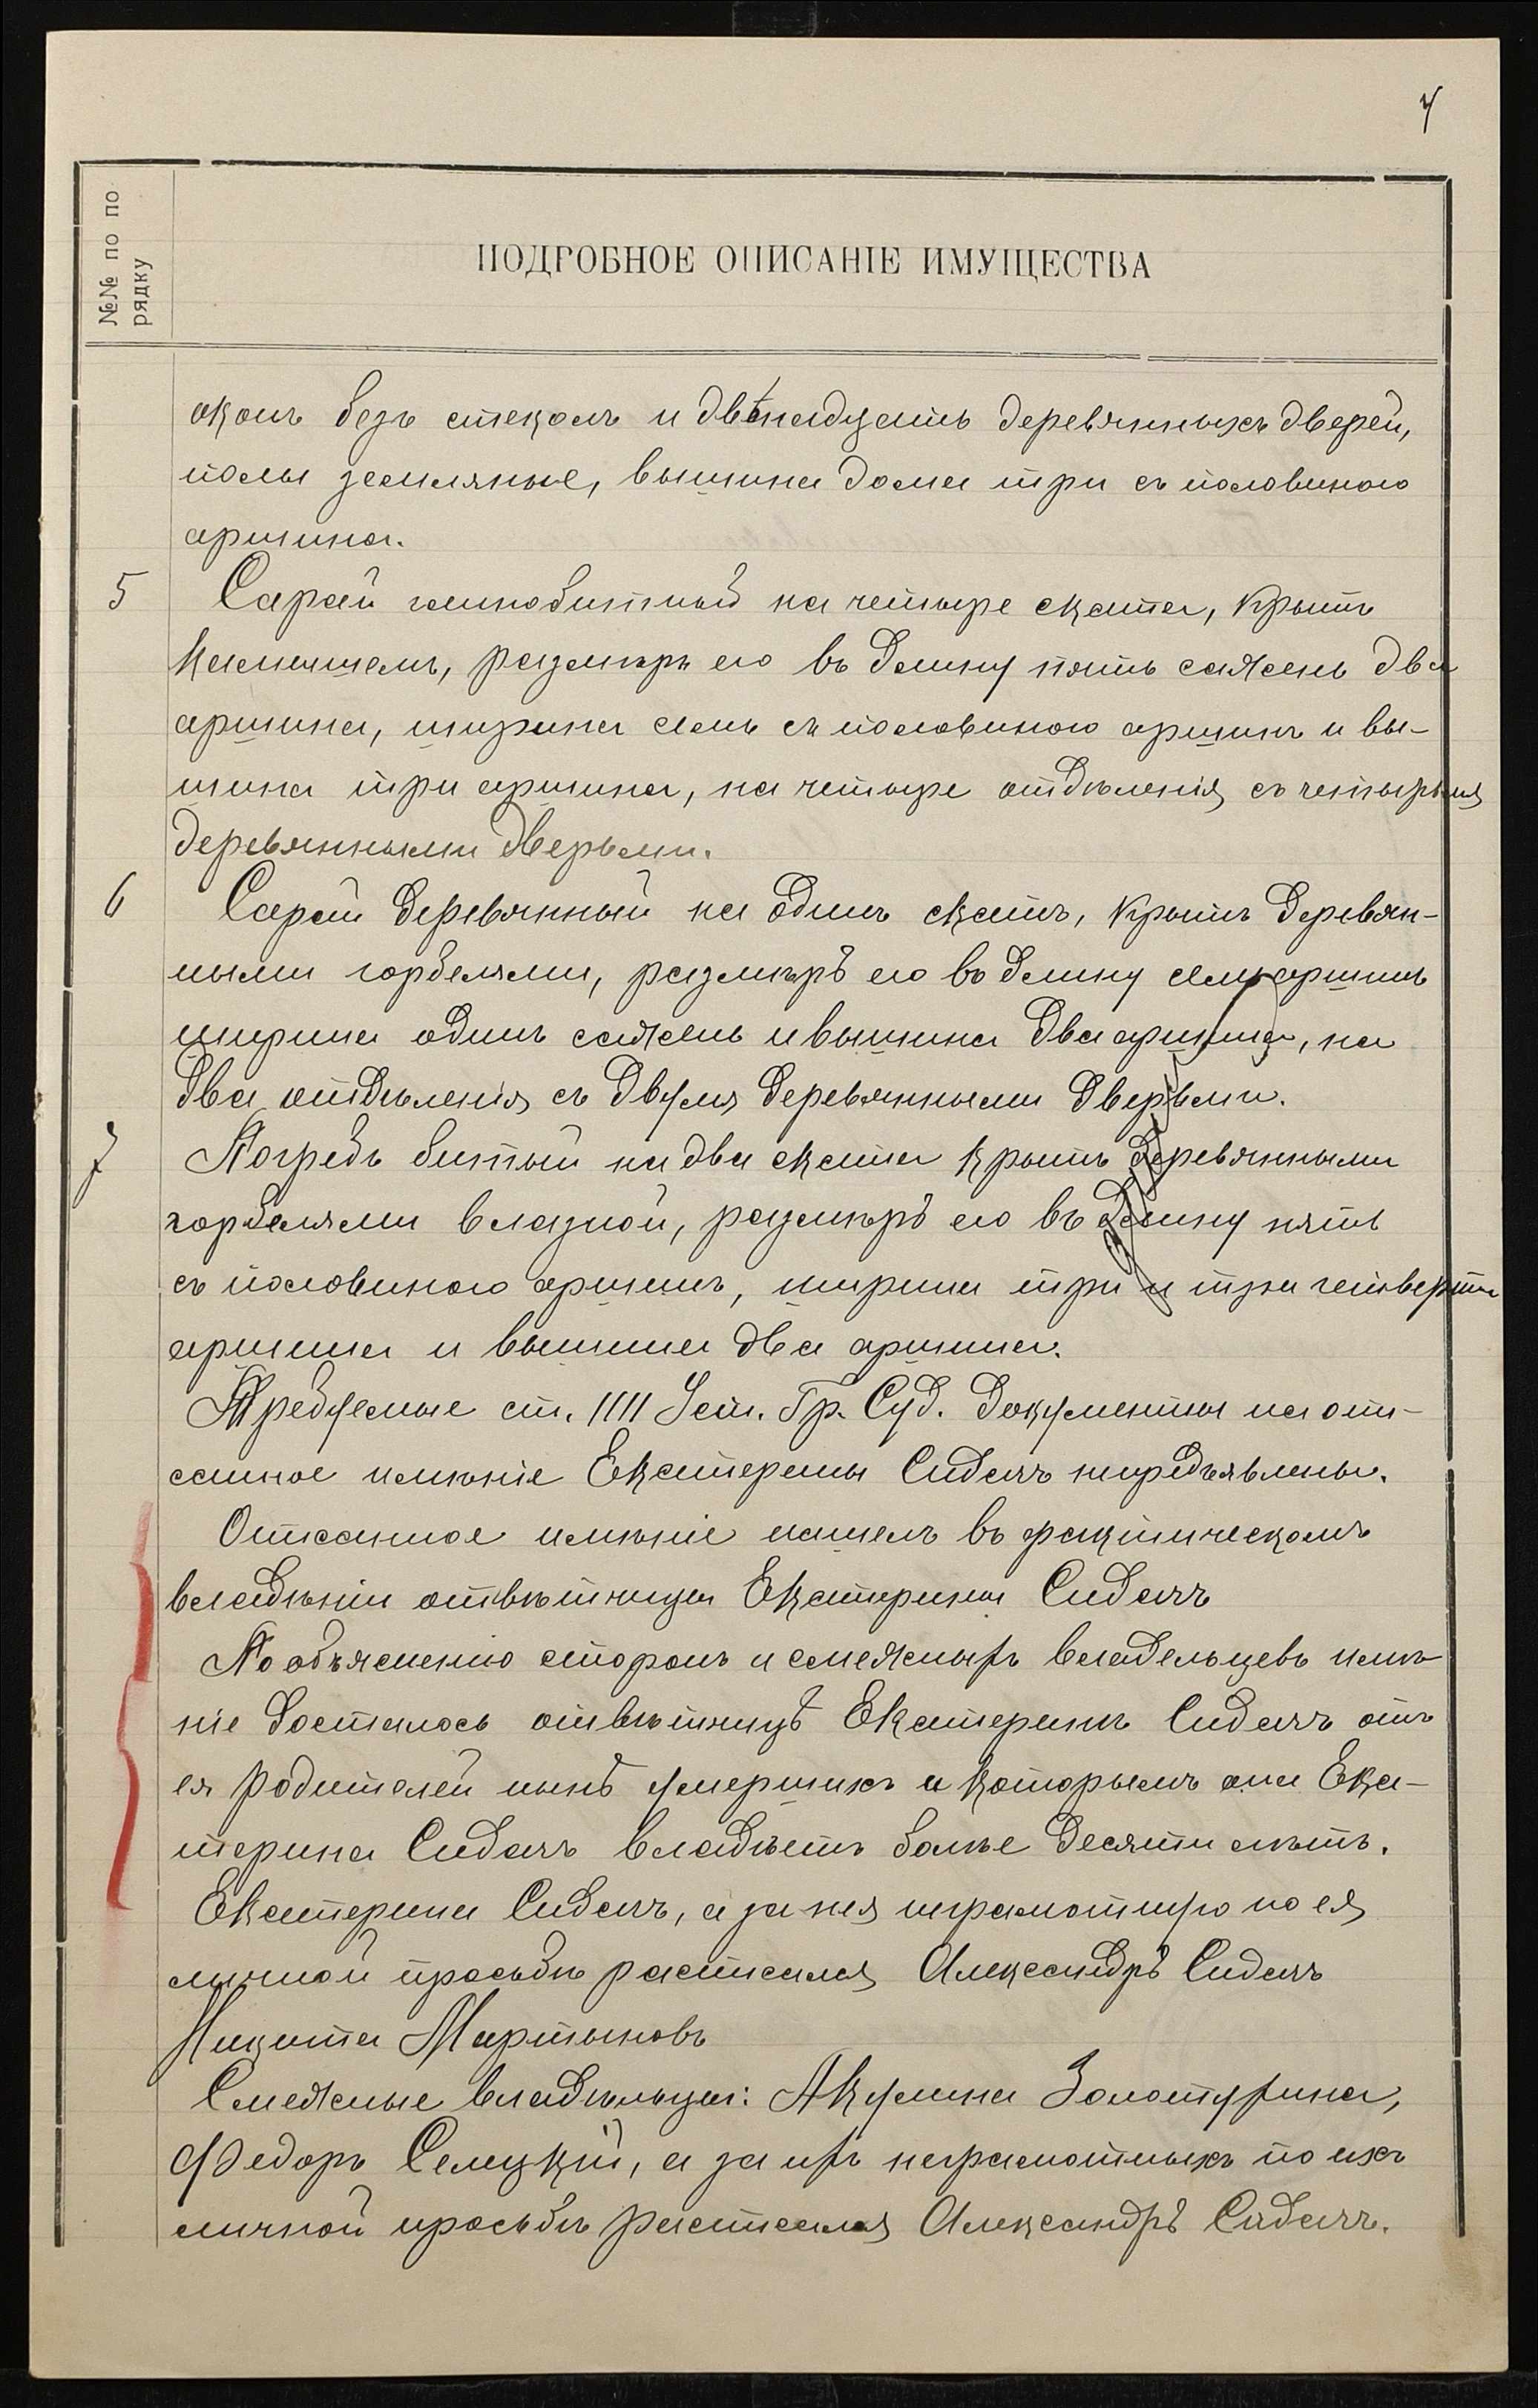 4
№№ по по
рядку
ПОДРОБНОЕ ОПИСАНІЕ ИМУЩЕСТВА
оконъ безъ стеколъ и двѣнадцать деревянныхъ дверей,
полы земляные, вышина дома три съ половиною
аршина.
5 Сарай глинобитный на четыре ската, крытъ
камышемъ, размѣръ его въ длину пять сажень два
аршина, ширина семь съ половиною аршинъ и вы-
шина три аршина, на четыре отдѣленія съ четырьмя
деревянными дверьми.
6 Сарай деревянный на одинъ скатъ, крытъ деревян-
ными горбелями, размѣръ его въ длину семь аршинъ
ширина одинъ сажень и вышина два аршина, на
два отдѣленія съ двумя деревянными дверьми.
7 Погребъ битый на два ската крытъ деревянными
горбелями влазной, размѣръ его въ длину пять
съ половиною аршинъ, ширина три и три четверти
аршина и вышина два аршина.
Требуемые ст. 1111 Уст. Гр. Суд. документы на опи-
санное имѣніе Екатерины Сидачъ не предъявлены.
Описанное имѣніе нашелъ въ фактическомъ
владѣніи отвѣтчицы Екатерины Сидачъ
По объясненію сторонъ и смежныхъ владельцевъ имѣ-
ніе досталось отвѣтчицѣ Екатеринѣ Сидачъ отъ
ея родителей нынѣ умершихъ и которымъ она Ека-
терина Сидачъ владѣетъ болѣе десяти лѣтъ.
Екатерина Сидачъ, а за нея неграмотную по ея
личной просьбѣ расписался Александръ Сидачъ
Никита Мартыновъ
Смежные владѣльцы: Акулина Золотухина,
Федоръ Селецкій, а за ихъ неграмотныхъ по ихъ
личной просьбѣ расписался Александръ Сидачъ.